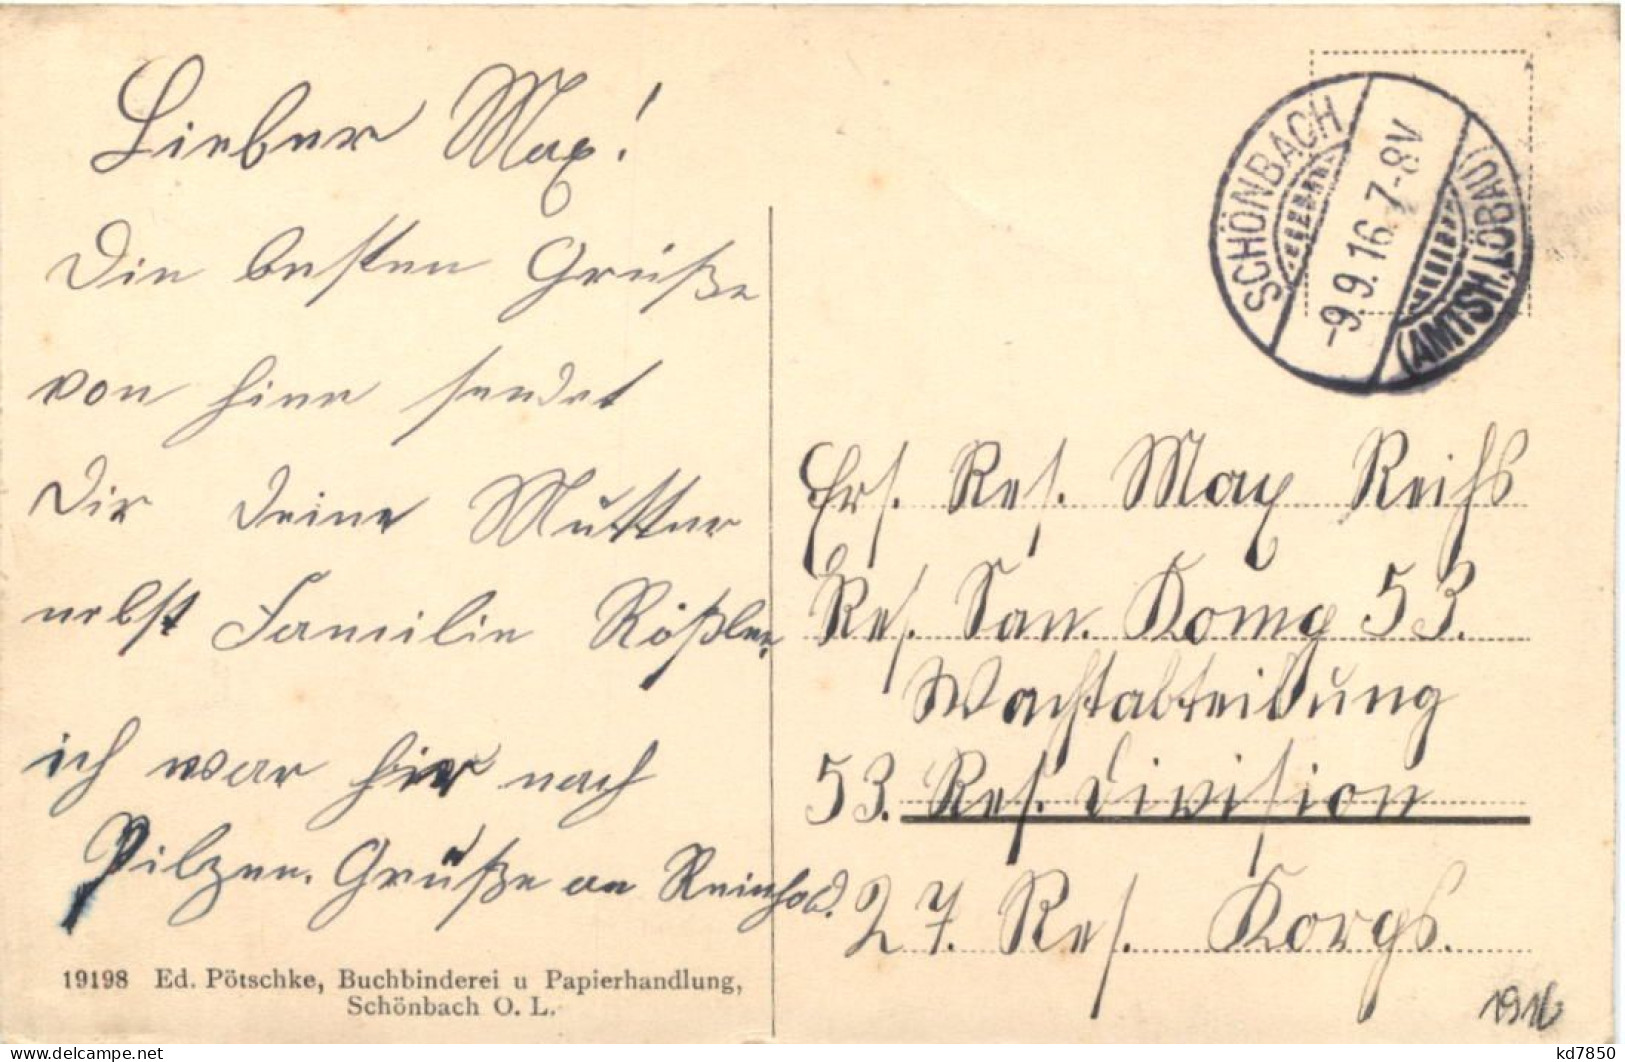 Lieber Max!
Die besten Grüße
von hier sendet
Dir deine Mutter
nebst Familie Rößler,
ich war hier nach
Pilzen. Grüße an Reinhold.
19198 Ed. Pötschke, Buchbinderei u Papierhandlung,
Schönbach O. L.
SCHÖNBACH
-9.9.16.7-8V
(AMTSH. LÖBAU)
Ers. Res. Max Reichs
Res. San. Komp 53.
Wachtabteilung
53. Res. Division
27. Res. Korps.
1916
kd7850